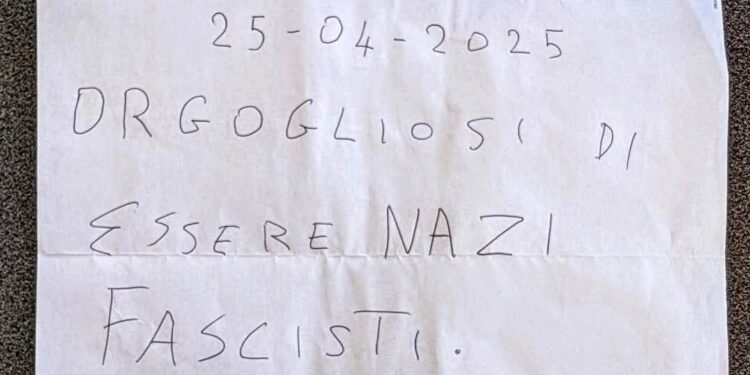 25-04-2025
ORGOGLIOSI DI
ESSERE NAZI
FASCISTI.